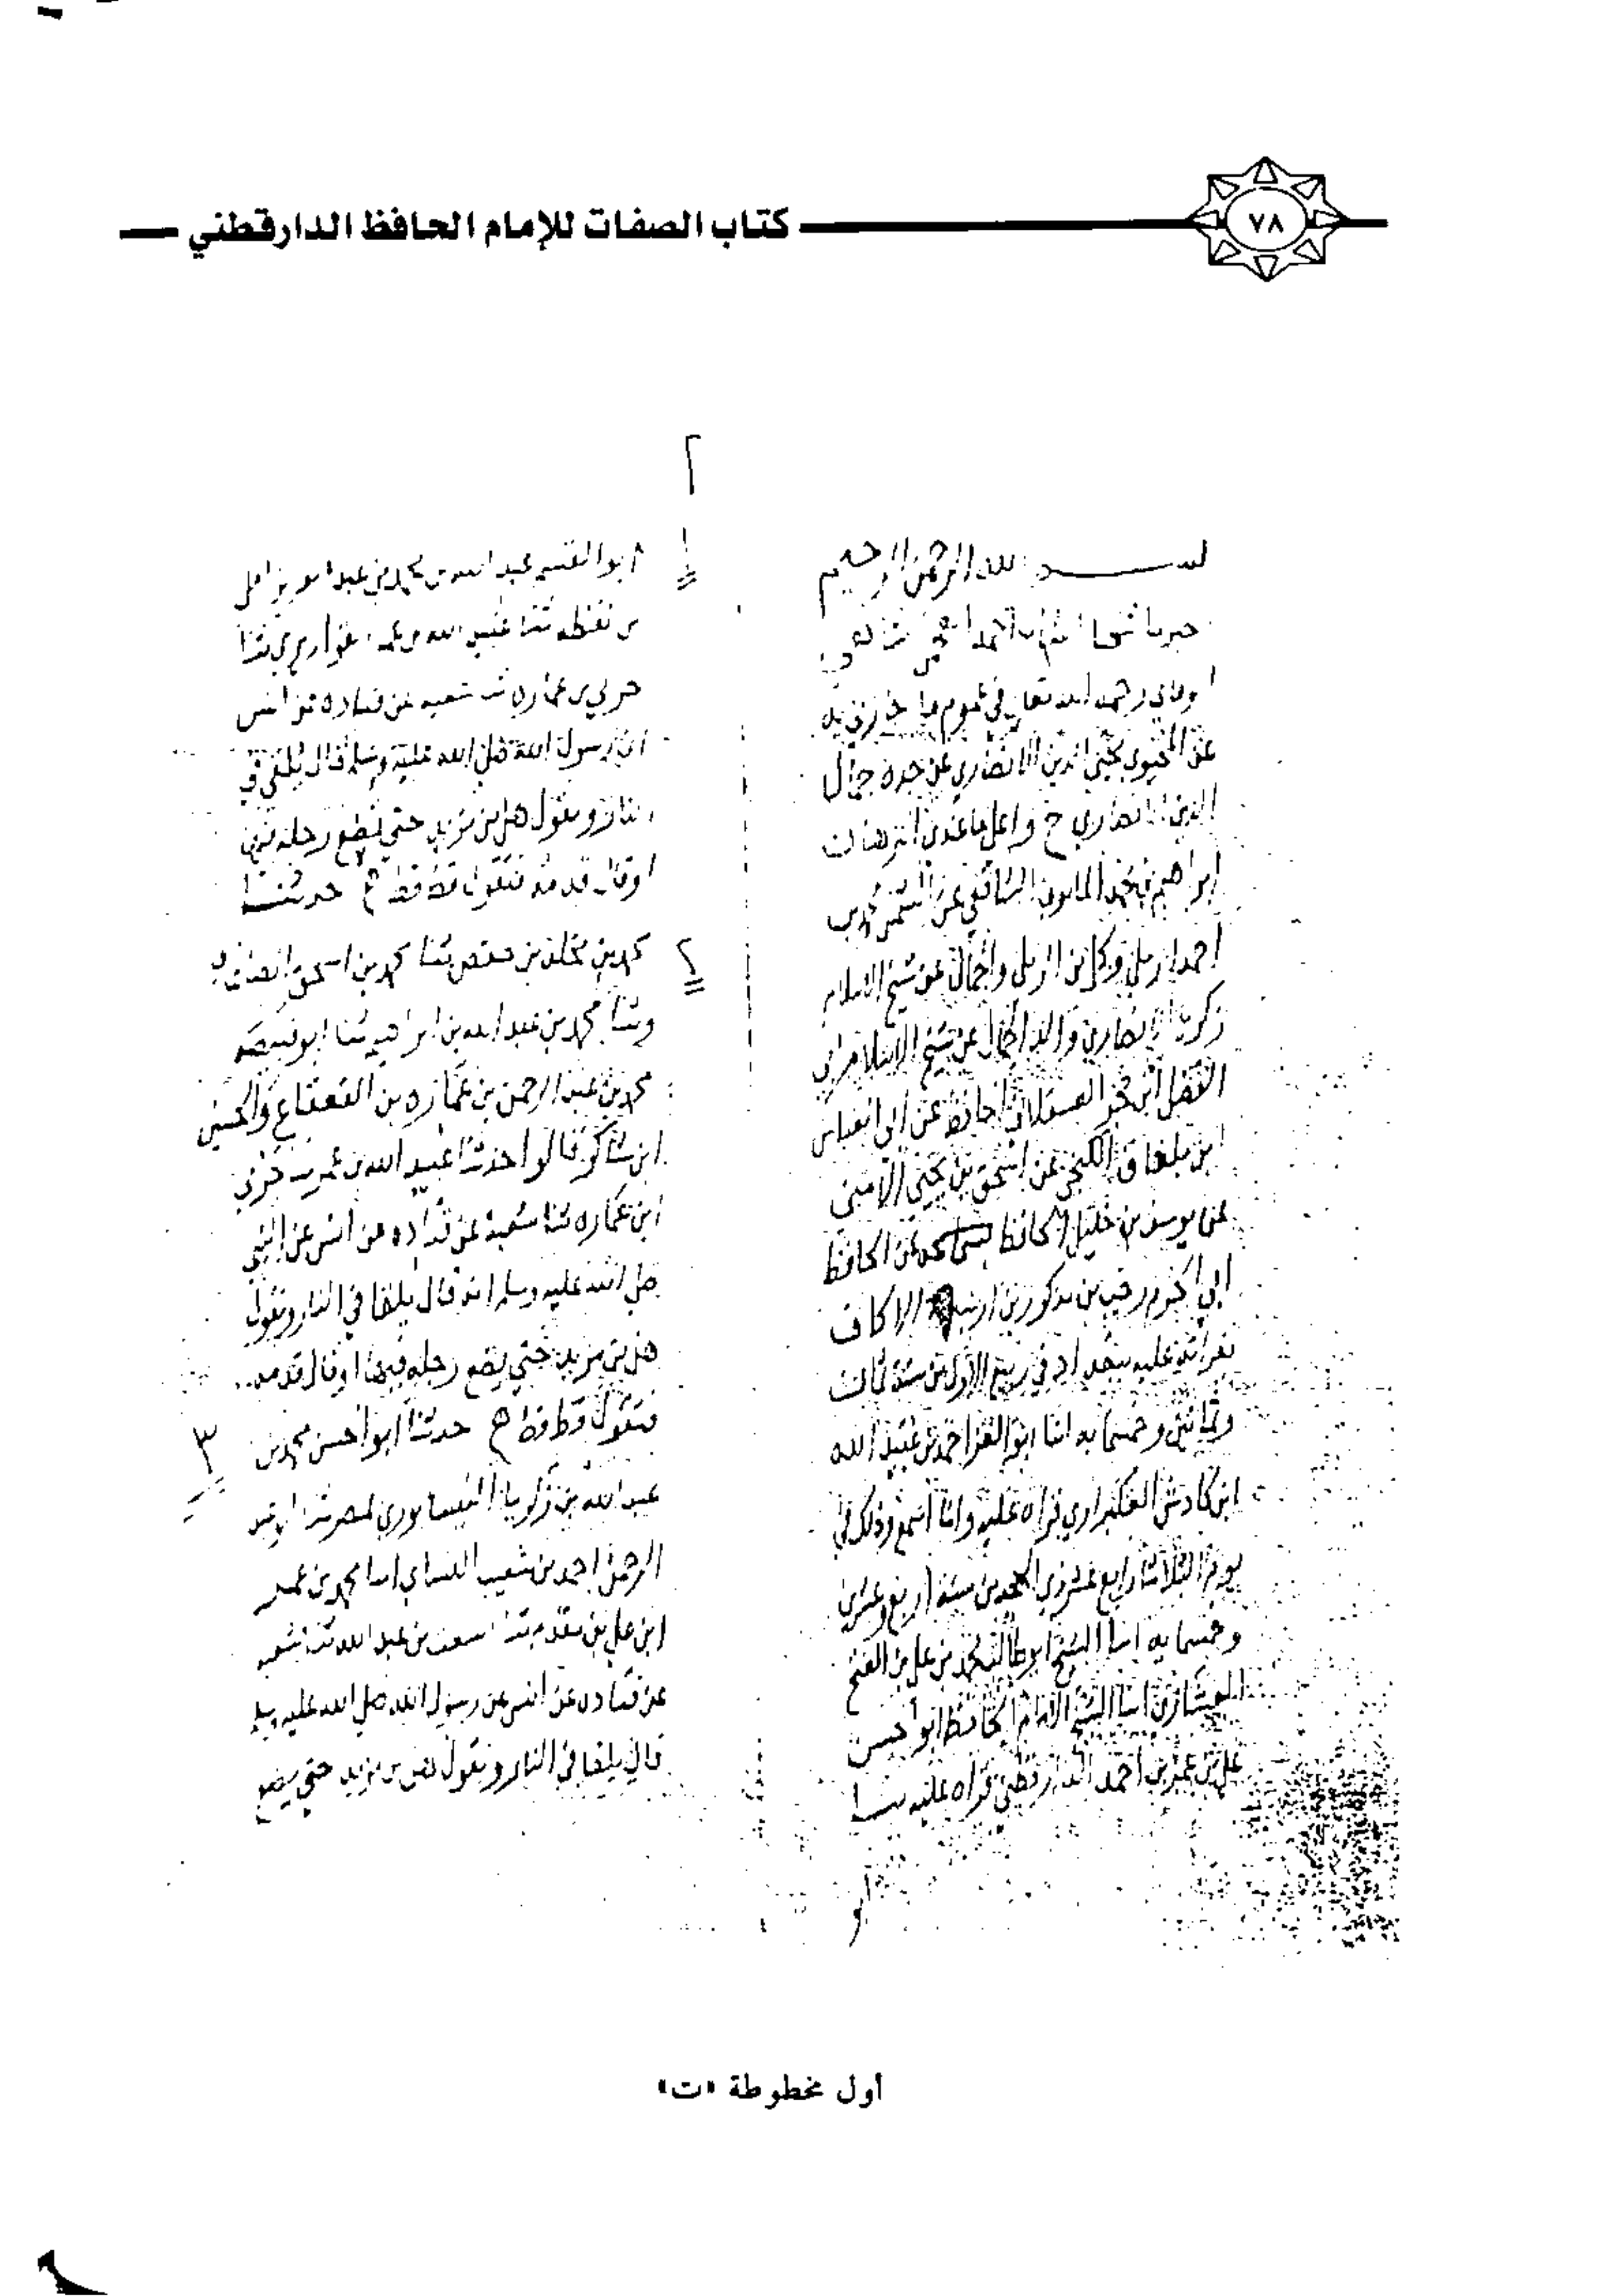 ٧٨
كتاب الصفات للإمام الحافظ الدارقطني
بسم الله الرحمن الرحيم
احمد
رحمه الله تعالى في عموم ما
عن المحيوي يحيى الدين الانصاري عن جده جمال
الدين الانصاري ح واعلى ما عندي البرهان
ابراهيم بن محمد الماموني الشافعي عن الشمس محمد بن
احمد الرملي وكل من الرملي والجمال عن شيخ الاسلام
زكريا الانصاري والجمال عن شيخ الاسلام ابي
الفضل ابن حجر العسقلاني الحافظ عن ابي العباس
ابن الكنجي عن اسحق بن يحيى الآمدي
عن يوسف بن خليل الحافظ الحافظ
ابي رجب بن مذكور بن ارنب الاكاف
بقراءته عليه ببغداد في ربيع الاول من سنة ثمان
وثمانين وخمسمايه انا ابو العز احمد بن عبيد الله
ابن كادش العكبراوي قراه عليه وانا اسمع وذلك في
يوم الثلاثا رابع عشر من سنة اربع وعشرين
وخمسمايه انبا الشيخ ابو طالب محمد بن علي بن الفتح
العشاري انبا الشيخ الامام الحافظ ابو الحسن
علي بن عمر بن احمد الدارقطني قراه عليه ثنا
ابو
٢
١
ابو القسم عبد الله بن محمد بن عبد العزيز املى
من لفظه ثنا عبيد الله بن عمر القواريري ثنا
حرمي بن عماره ثنا شعبه عن قتاده عن انس
ان رسول الله صلى الله عليه وسلم قال يلقى في
النار وتقول هل من مزيد حتى يضع رجله فيها
او قال قدمه فتقول قط قط ح حدثنا
٢
محمد بن مخلد بن حفص ثنا محمد بن اسحق الصاغاني
وثنا محمد بن عبد الله بن ابراهيم ثنا ابو قبيصه
محمد بن عبد الرحمن بن عماره بن القعقاع والحسين
ابن شاكر قالوا حدثنا عبيد الله بن عمر ثنا حرمي
ابن عماره ثنا شعبة عن قتاده عن انس عن النبي
صلى الله عليه وسلم انه قال يلقا في النار وتقول
هل من مزيد حتى يضع رجله فيها او قال قدمه
فتقول قط قط ح حدثنا ابو الحسن محمد بن
٣
عبد الله بن زكريا النيسابوري بمصر ثنا ابو عبد
الرحمن احمد بن شعيب النساي انبا محمد بن عمر
ابن علي بن مقدم ثنا اسعث بن عبد الله ثنا شعبه
عن قتاده عن انس عن رسول الله صلى الله عليه وسلم
قال يلقا في النار وتقول هل من مزيد حتى يضع
أول مخطوطة «ت»